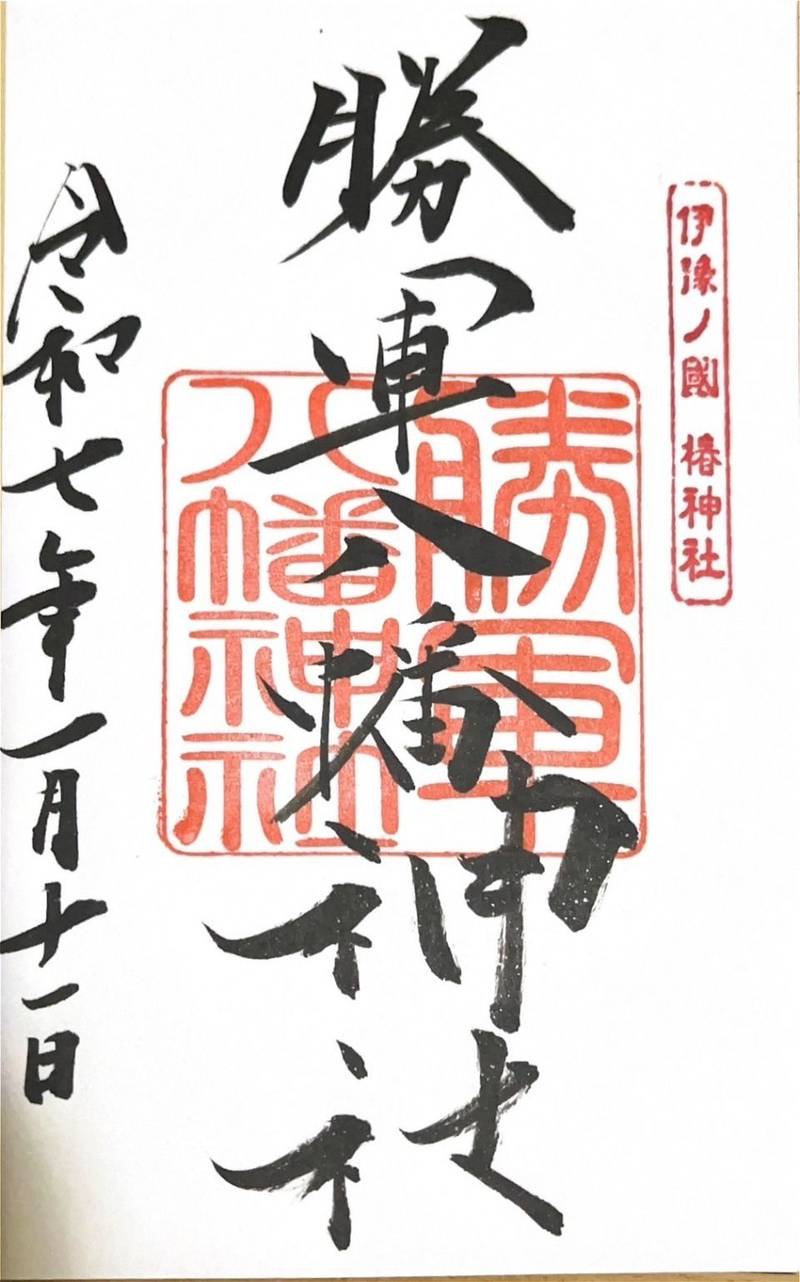 伊豫ノ國 椿神社
勝軍八幡神社
勝軍
八幡神社
令和七年一月十一日